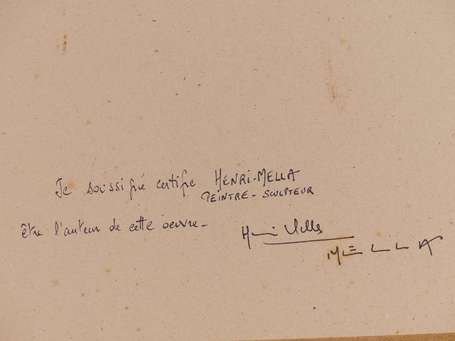 Je soussigné certifie HENRI-MELLA
PEINTRE - SCULPTEUR
être l'auteur de cette oeuvre -
Henri Mella
MELLA